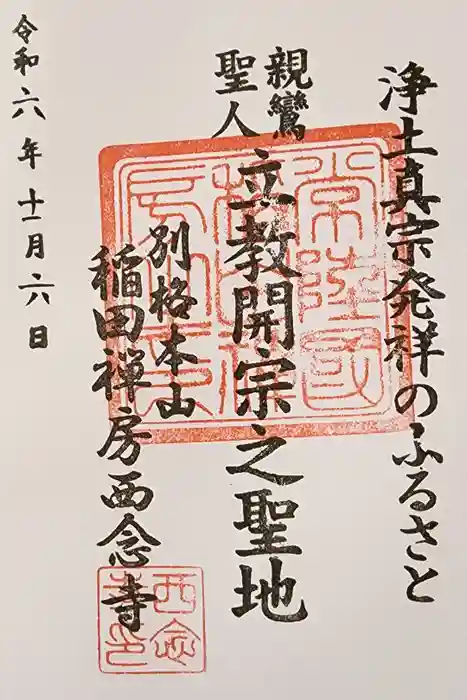 浄土真宗発祥のふるさと
親鸞
聖人
立教開宗之聖地
別格本山
稲田禅房西念寺
令和六年十一月六日
常陸国
西念
寺印